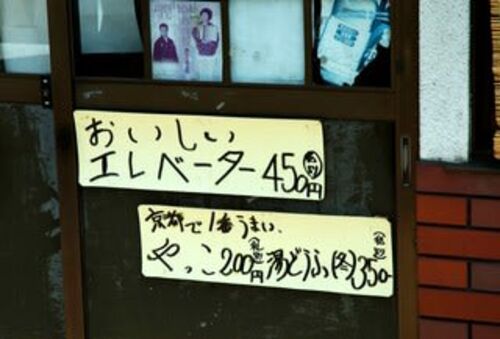 おいしい
エレベーター 450円
京都で1番うまい、
やっこ 200円 湯どうふ(冬) 350-